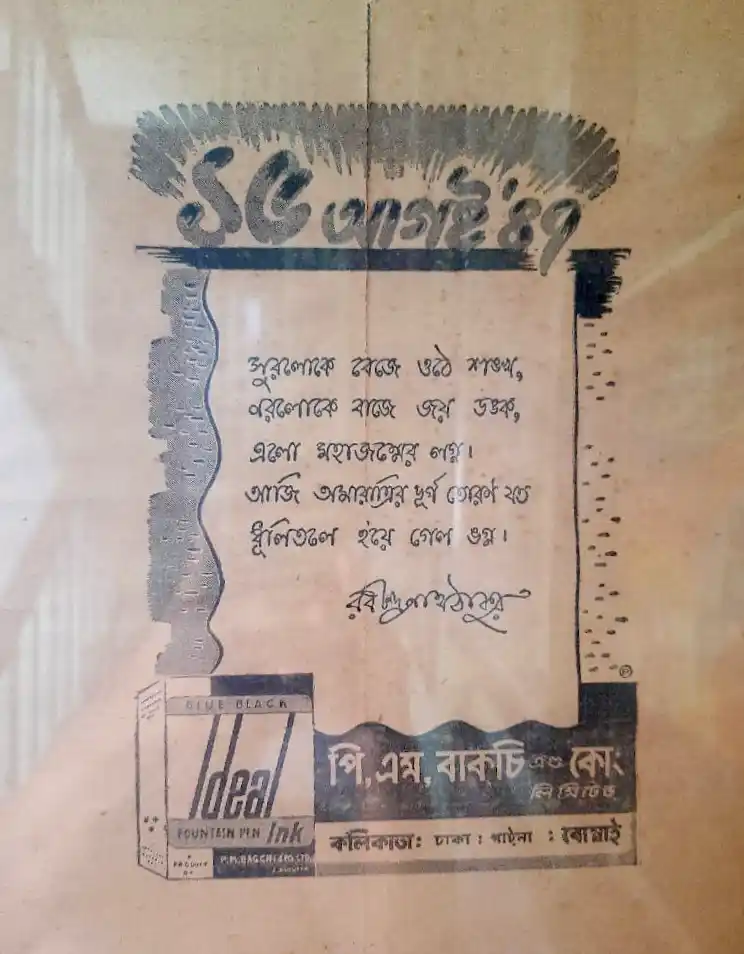 ১৫ আগষ্ট '৪৭
সুরলোকে বেজে ওঠে শঙ্খ,
নরলোকে বাজে জয় ডঙ্ক,
এলো মহাজন্মের লগ্ন।
আজি অমারাত্রির দূর্গ তোরণ যত
ধূলিতলে হ'য়ে গেল ভগ্ন।
রবীন্দ্রনাথ ঠাকুর
BLUE BLACK
Ideal
FOUNTAIN PEN Ink
PRODUCT
P.M. BAGCHI & CO. LTD.
পি, এম, বাকচি এণ্ড কোং
লিমিটেড
কলিকাতা: ঢাকা : পাটনা : বোম্বাই